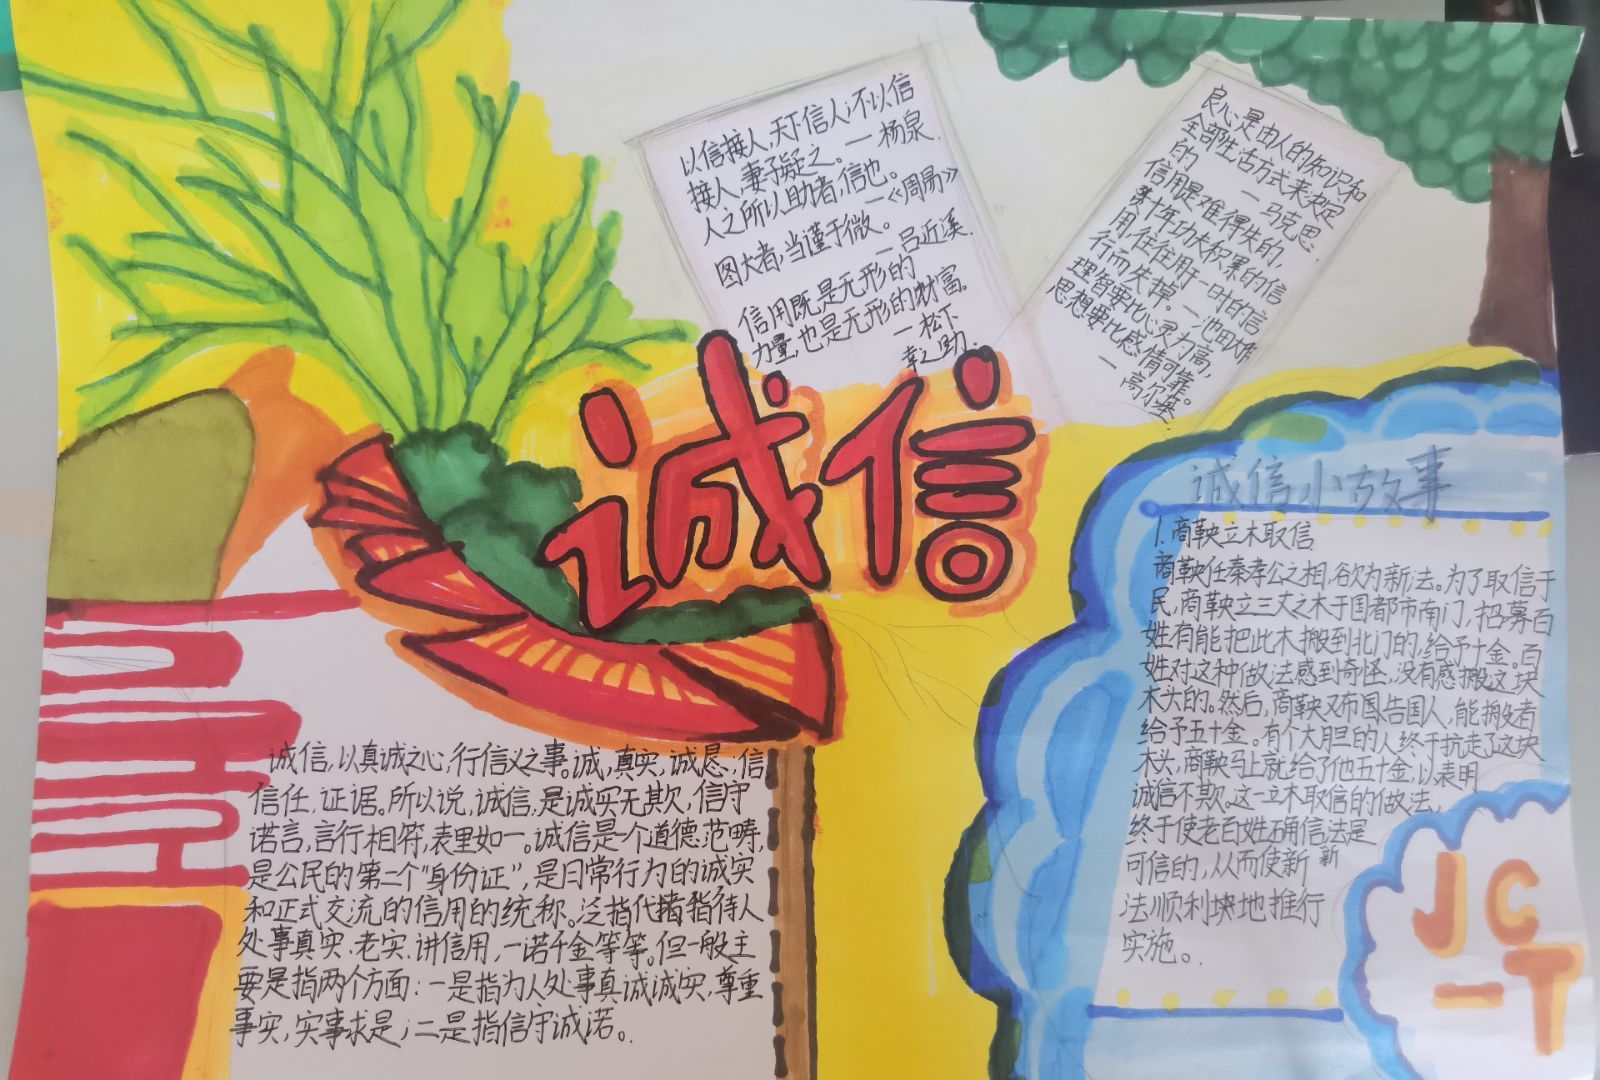 以信接人，天下信人；不以信
接人，妻子疑之。—杨泉.
人之所以助者，信也。
—《周易》
图大者，当谨于微。
—吕近溪.
信用既是无形的
力量，也是无形的财富。
—松下
幸之助.
良心是由人的知识和
全部生活方式来决定
的 —马克思.
信用是难得失的，
费十年功夫积累的信
用，往往用一时的信
行而失掉。—池田大作
理智要比心灵为高，
思想要比感情可靠。
—高尔基
诚信
诚信，以真诚之心，行信义之事。诚，真实，诚恳，信
信任.证据。所以说，诚信，是诚实无其欠，信守
诺言，言行相符，表里如一。诚信是一个道德范畴，
是公民的第二个"身份证"，是日常行为的诚实
和正式交流的信用的统称。泛指代指待人
处事真实.老实.讲信用，一诺千金等等。但一般主
要是指两个方面：一是指为人处事真诚诚实，尊重
事实，实事求是；二是指信守诚诺。
诚信小故事
1.商鞅立木取信
商鞅任秦孝公之相，欲为新法。为了取信于
民，商鞅立三丈之木于国都市南门，招募百
姓有能把此木搬到北门的，给予十金。百
姓对这种做法感到奇怪，没有感搬这块
木头的。然后，商鞅又布国告国人，能搬者
给予五十金。有个大胆的人终于抗走了这块
木头，商鞅马上就给了他五十金，以表明
诚信不欺。这一立木取信的做法，
终于使老百姓确信法是
可信的，从而使新 新
法顺利块地推行
实施。
J C
T